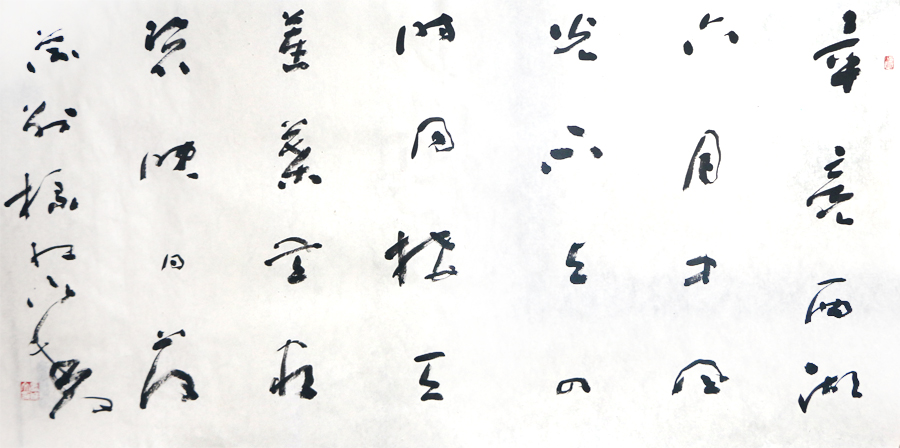 畢竟西湖
六月中風
光不与四
時同接天
蓮葉無窮
碧映日荷
花別樣紅